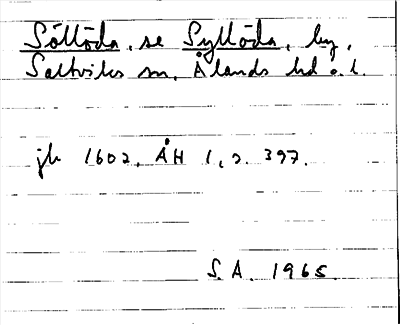 Söllöda, se Syllöda, by,
Saltviks sn, Ålands hd o. l.
jb 1602, ÅH 1, s. 397.
S. A. 1965